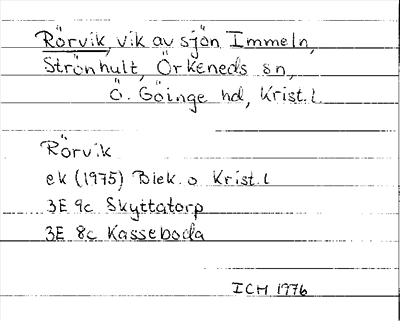 Rörvik, vik av sjön Immeln,
Strönhult, Örkeneds sn,
Ö. Göinge hd, Krist. l.
Rörvik
ek (1975) Blek. o Krist. l
3E 9c Skyttatorp
3E 8c Kasseboda
ICH 1976